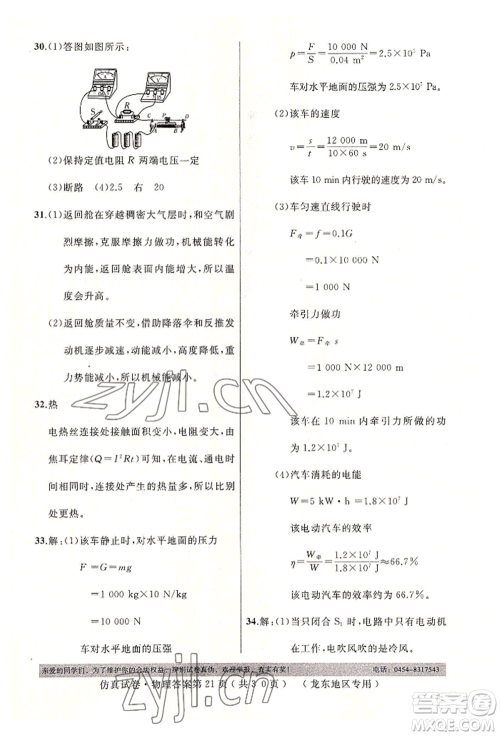 30.(1)答图如图所示:
(2)保持定值电阻 R 两端电压一定
(3)断路 (4)2.5 右 20
31.(1)返回舱在穿越稠密大气层时,和空气剧
烈摩擦,克服摩擦力做功,机械能转化
为内能,返回舱表面内能增大,所以温
度会升高。
(2)返回舱质量不变,借助降落伞和反推发
动机逐步减速,动能减小,高度减小,重
力势能减小,所以机械能减小。
32.热
电热丝连接处接触面积变小,电阻变大,由
焦耳定律(Q=I²Rt)可知,在电流、通电时
间相同时,连接处产生的热量较其他部位
更热。
33.解:(1)该车静止时,对水平地面的压力
F=G=mg
=1 000 kg×10 N/kg
=10 000 N
车对水平地面的压强
p=F/S=10 000 N/0.04 m²=2.5×10⁵ Pa
车对水平地面的压强为2.5×10⁵ Pa。
(2)该车的速度
v=s/t=12 000 m/10×60 s=20 m/s
该车 10 min 内行驶的速度为20 m/s。
(3)车匀速直线行驶时
F牵=f=0.1G
=0.1×10 000 N
=1 000 N
牵引力做功
W牵=F牵 s
=1 000 N×12 000 m
=1.2×10⁷ J
该车在 10 min 内牵引力所做的功
为1.2×10⁷ J。
(4)汽车消耗的电能
W=5 kW·h=1.8×10⁷ J
该电动汽车的效率
η=W牵/W=1.2×10⁷ J/1.8×10⁷ J≈66.7%
该电动汽车的效率为66.7%。
34.解:(1)当只闭合 S₁ 时,电路中只有电动机
在工作,电吹风吹的是冷风。
亲爱的同学们,为了维护你的合法权益,请辨别试卷真伪,欢迎举报,查实有奖! 电话:0454-8317543
仿真试卷·物理答案第21页(共30页) (龙东地区专用)
zyjl.cn
zyjl.cn